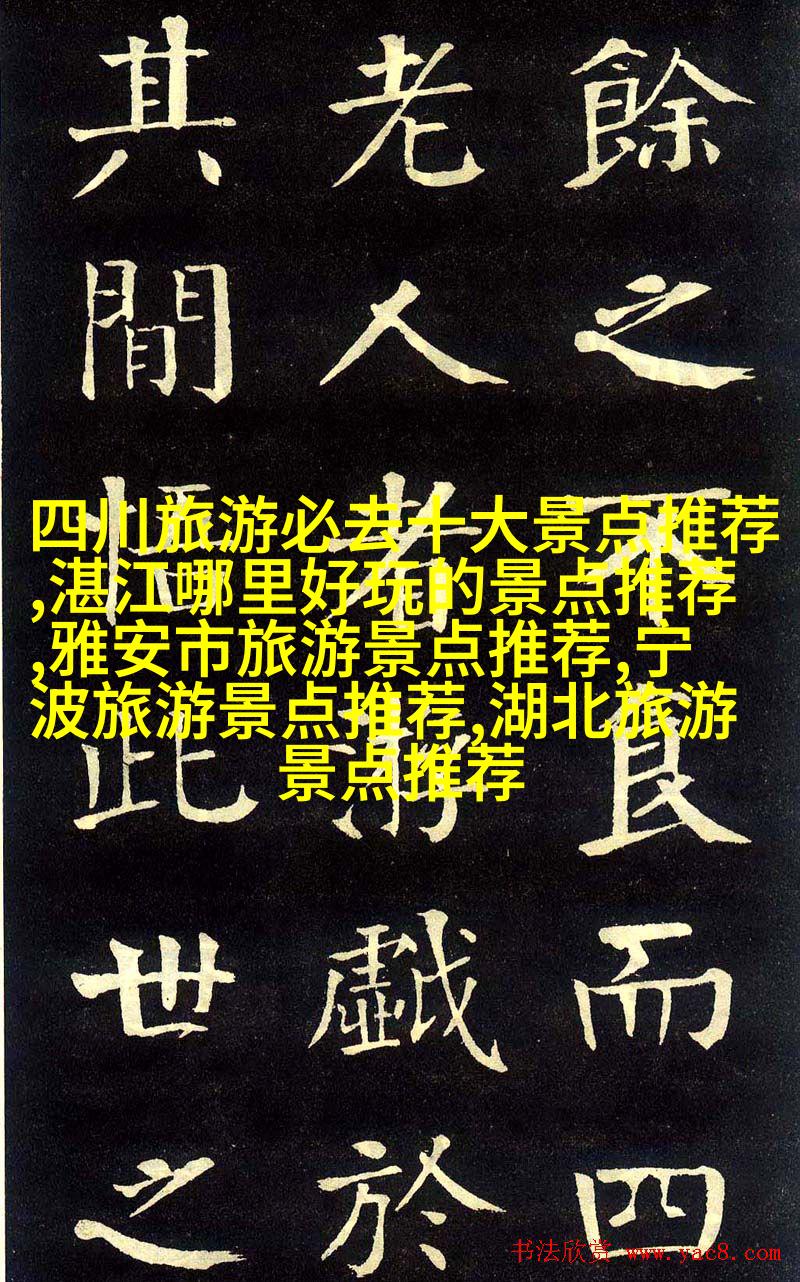 餘之不食而四
老人者游戱於
其間悟此世之
四川旅游必去十大景点推荐
,湛江哪里好玩的景点推荐
,雅安市旅游景点推荐,宁
波旅游景点推荐,湖北旅游
景点推荐
书法欣赏 www.yac8.com